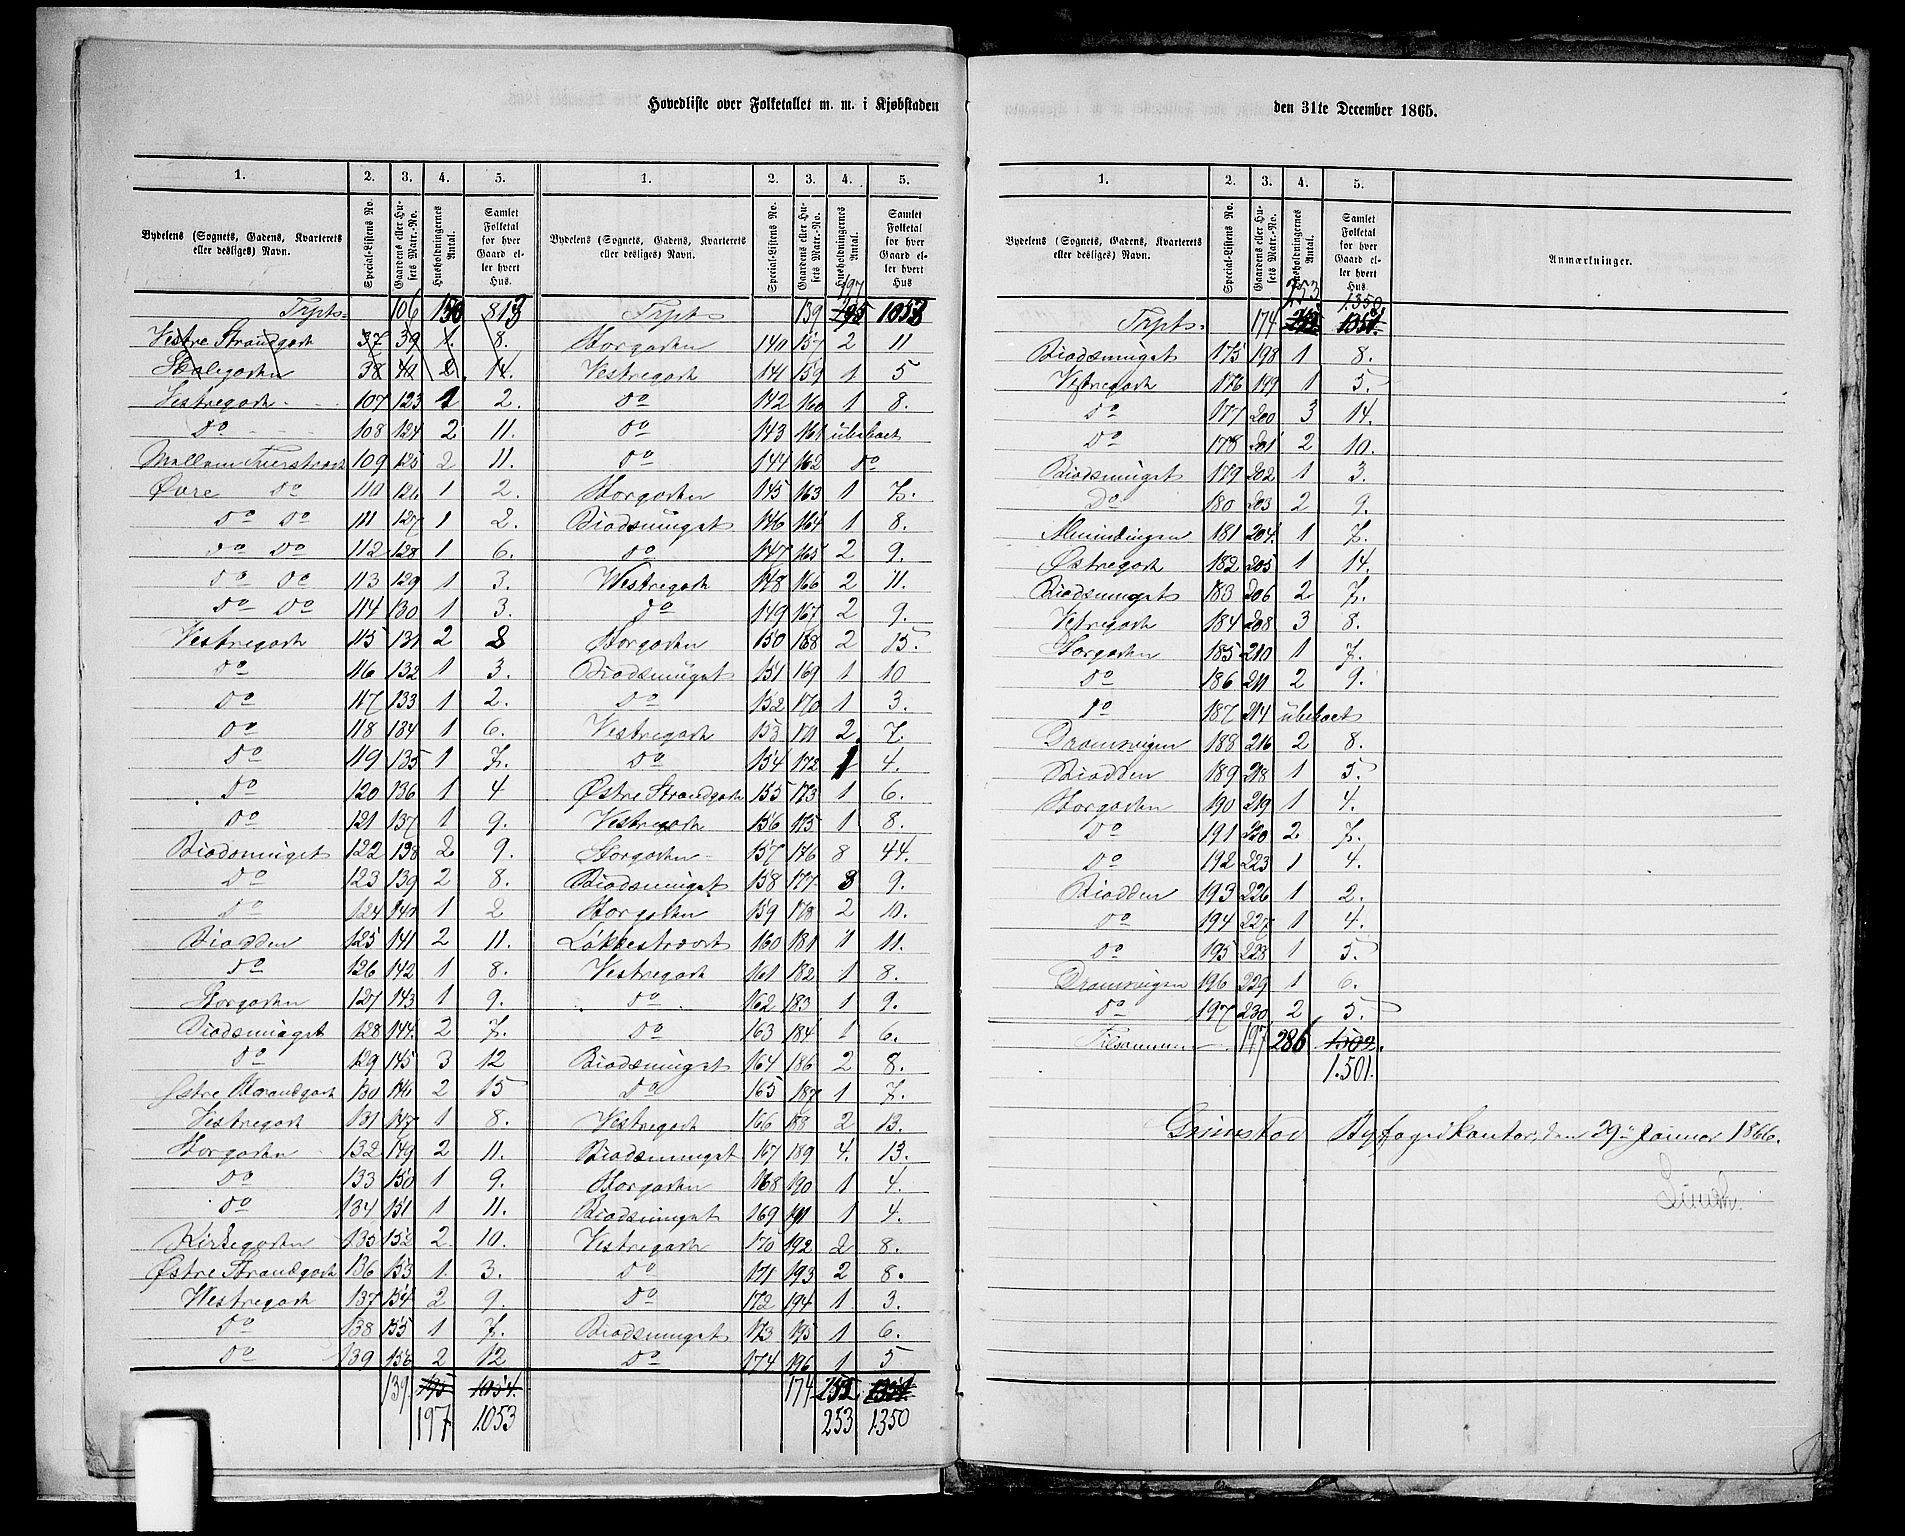 Hovedliste over Folketallet m. m. i Kjøbstaden
den 31te December 1865.
1. 2. 3. 4. 5.
Bydelens (Sognets, Gadens, Kvarterets eller desliges) Navn. Special-Listens No. Gaardens eller Husets Matr.-No. Husholdningernes Antal. Samlet Folketal for hver Gaard eller hvert Hus.
Trpt. 106 150 813
Vestre Strandgade 37 39 1. 8.
38 40 2. 14.
Vestregade 107 123 1 2.
Do 108 124 2 11.
109 125 2 11.
Øvre Do 110 126 1 2.
Do Do 111 127 1 2.
Do Do 112 128 1 6.
Do Do 113 129 1 3.
Do Do 114 130 1 3.
Vestregade 115 131 2 8
Do 116 132 1 3.
Do 117 133 1 2.
Do 118 134 1 6.
Do 119 135 1 7.
Do 120 136 1 4
Do 121 137 1 9.
Biodsmuget 122 138 2 9.
Do 123 139 2 8.
Do 124 140 1 2
Biodden 125 141 2 11.
Do 126 142 1 8.
Storgaden 127 143 1 9.
Biodsmuget 128 144 2 7.
Do 129 145 3 12
Østre Strandgade 130 146 2 15
Vestregade 131 147 1 8.
Storgaden 132 149 2 11.
Do 133 150 1 9.
Do 134 151 1 11.
Kirkegaden 135 152 2 10.
Østre Strandgade 136 153 1. 3.
Westregade 137 154 2 9.
Do 138 155 1 7.
Do 139 156 2 12
139. 195 1054.
197 1053
1. 2. 3. 4. 5.
Bydelens (Sognets, Gadens, Kvarterets eller desliges) Navn. Special-Listens No. Gaardens eller Husets Matr.-No. Husholdningernes Antal. Samlet Folketal for hver Gaard eller hvert Hus
197
Trpt. 139 195 1053
Storgaden 140 157 2 11
Vestregade 141 159 1 5
Do 142 160 1 8.
Do 143 161 ubeboet
Do 144 162 Do
Storgaden 145 163 1 7.
Biodsmuget 146 164 1 8.
Do 147 165 2 9.
Westregade 148 166 2 11.
Do 149 167 2 9.
Storgaden 150 168 2 15.
Biodsmuget 151 169 1 10
Do 152 170 1 3.
Vestregade 153 171 2. 7.
Do 154 172 1 4.
Østre Strandgade 155 173 1 6.
Vestregade 156 175 1 8.
Storgaden 157 176 8 44.
Biodsmuget 158 177 3 9.
Storgaden 159 178 2 10.
Løkkestrædet 160 181 1 11.
Vestregade 161 182 1 8.
Do 162 183 1 9.
Do 163 184 1 6.
Biodsmuget 164 186 2 8.
Do 165 187 1 7.
Vestregade 166 188 2 13.
Biodsmuget 167 189 4. 13.
Storgaden 168 190 1 4.
Biodsmuget 169 191 1 4.
Vestregade 170 192 2 8.
Do 171 193 2 8.
Do 172 194 1 3.
Biodsmuget 173 195 1 6.
Do 174 196 1 5
174 1351.
253 1350
1. 2. 3. 4. 5.
Bydelens (Sognets, Gadens, Kvarterets eller desliges) Navn. Special-Listens No. Gaardens eller Husets Matr.-No. Husholdningernes Antal. Samlet Folketal for hver Gaard eller hvert Hus. Anmærkninger.
253. 1350.
Trpt. 174 1351.
Biodsmuget 175 198 1 8.
Vestregade 176 199 1 5.
Do 177 200 3 14.
Do 178 201 2 10.
Biodsmuget 179 202 1 3.
Do 180 203 2 9.
Almindingen 181 204. 1 7.
Østregade 182 205 1 14.
Biodsmuget 183 206 2 7.
Vestregade 184 208 3 8.
Storgaden 185 210 1 7.
Do 186 211 2 9.
Do 187 214 ubeboet
Dromvigen 188 216 2 8.
Biodden 189 218 1 5.
Storgaden 190 219 1 4.
Do 191 220 2. 7.
Do 192 223 1 4.
Biodden 193 226 1 2.
Do 194 227 1 4.
Do 195 228 1 5.
Dromvigen 196 229 1 6.
Do 197 230 2 5.
Tilsammen 197 286 1502.
1.501.
Grimstad Byfogedkontor, den 29de Januar 1866.